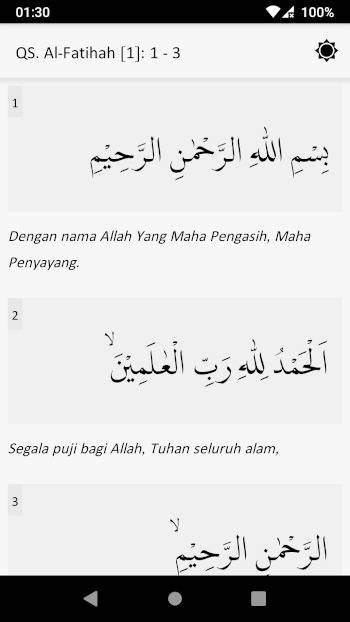 01:30
100%
QS. Al-Fatihah [1]: 1 - 3
1
بِسْمِ اللّٰهِ الرَّحْمٰنِ الرَّحِيْمِ
Dengan nama Allah Yang Maha Pengasih, Maha
Penyayang.
2
اَلْحَمْدُ لِلّٰهِ رَبِّ الْعٰلَمِيْنَۙ
Segala puji bagi Allah, Tuhan seluruh alam,
3
الرَّحْمٰنِ الرَّحِيْمِۙ